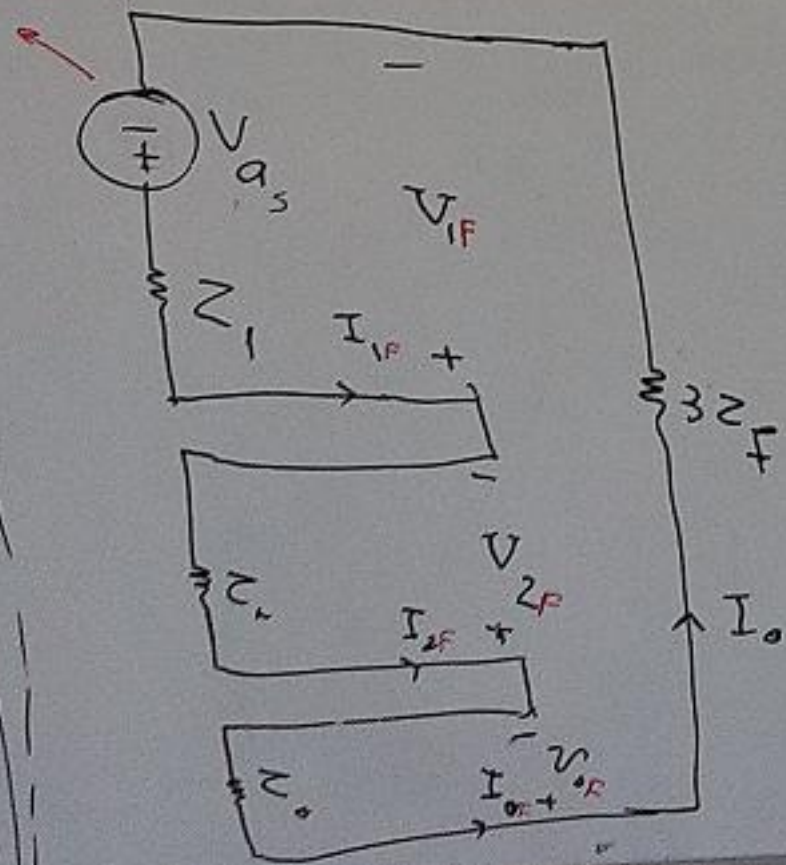 −
− + V_as
V_1F
Z_1
I_1F +
3Z_F
−
V_2F
Z_2
I_2F +
I_0
−
V_0F
Z_0
I_0F +